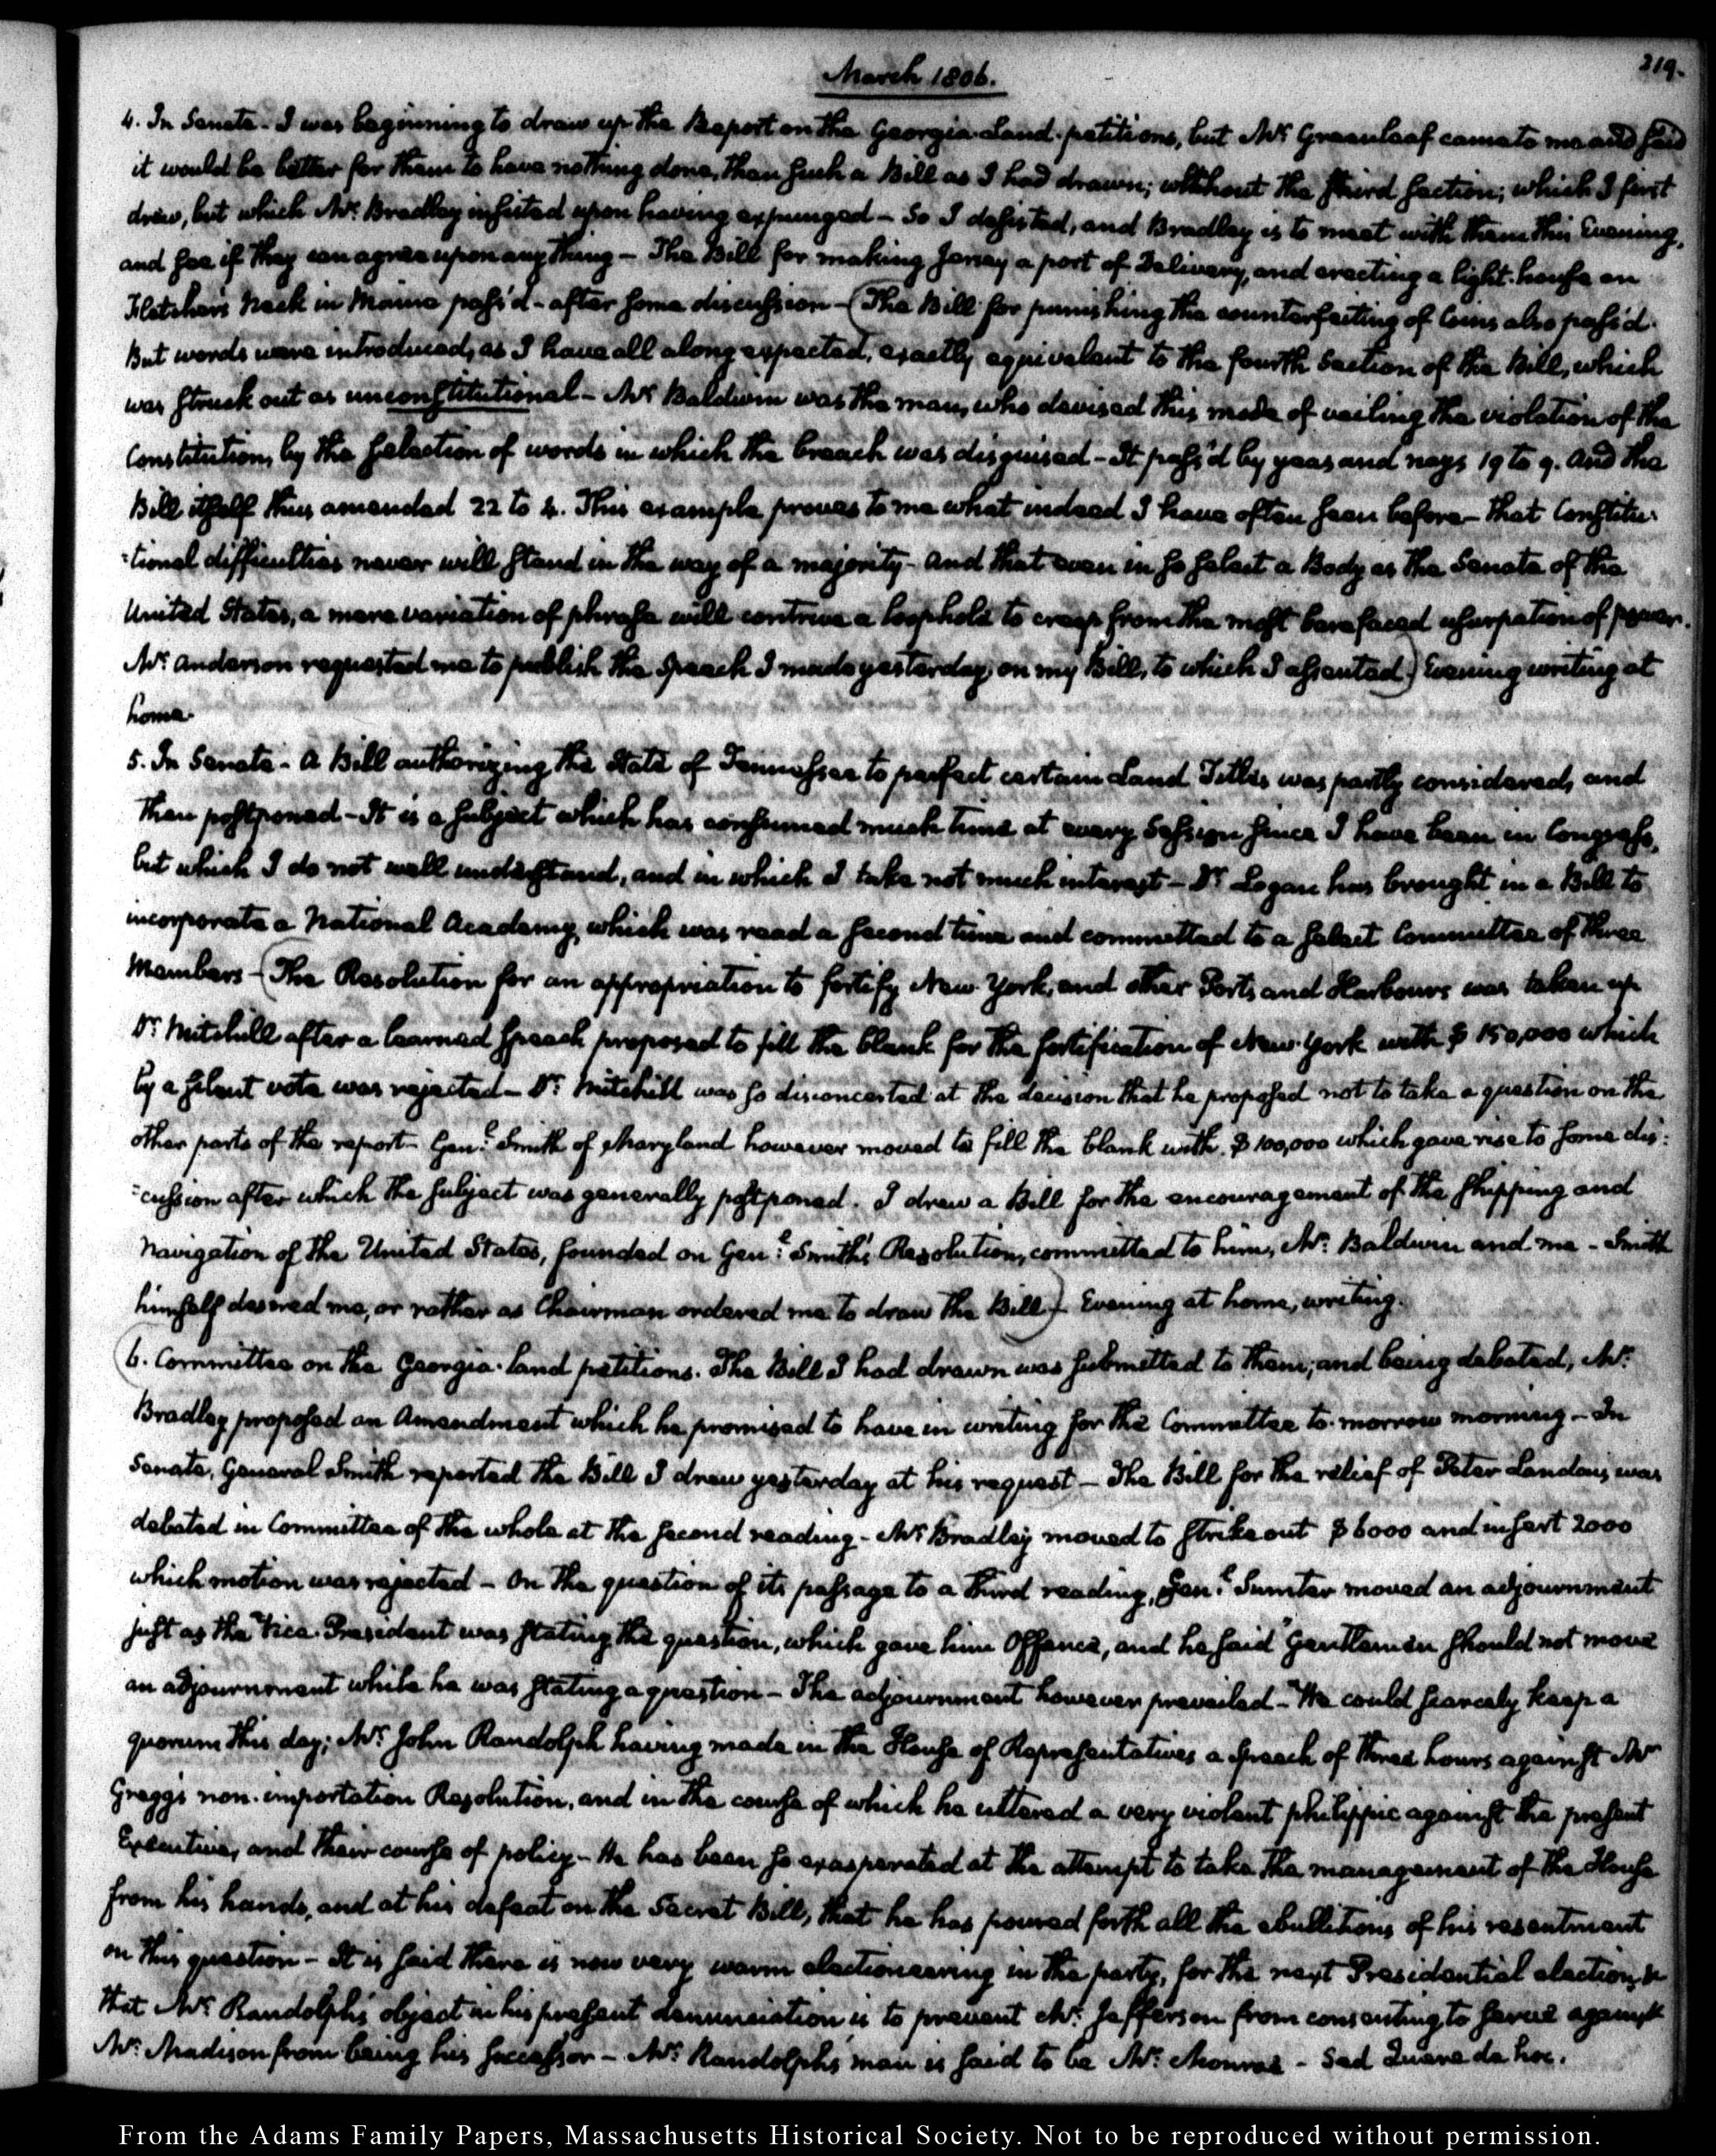 March 1806.
219.
4. In Senate - I was beginning to draw up the Report on the Georgia Land-petitions, but Mr Greenleaf came to me and said
it would be better for them to have nothing done, than such a Bill as I had drawn; without the third section; which I first
drew, but which Mr. Bradley insisted upon having expunged - So I desisted, and Bradley is to meet with them this Evening,
and see if they can agree upon any thing - The Bill for making Jersey a port of Delivery, and erecting a light-house on
Fletcher's Neck in Maine pass'd - after some discussion - (The Bill for punishing the counterfeiting of Coins also pass'd.
But words were introduced, as I have all along expected, exactly equivalent to the fourth Section of the Bill, which
was struck out as unconstitutional - Mr Baldwin was the man, who devised this mode of veiling the violation of the
Constitution, by the selection of words in which the breach was disguised - It pass'd by yeas and nays 19 to 9. And the
Bill itself thus amended 22 to 4. This example proves to me what indeed I have often seen before - that Constitu-
-tional difficulties never will stand in the way of a majority - and that even in so select a Body as the Senate of the
United States, a mere variation of phrase will contrive a loophole to creep from the most barefaced usurpation of power.
Mr. Anderson requested me to publish the speech I made yesterday, on my Bill, to which I assented.) Evening writing at
home.
5. In Senate - A Bill authorizing the State of Tennessee to perfect certain Land Titles was partly considered, and
then postponed - It is a subject which has consumed much time at every Session since I have been in Congress,
but which I do not well understand, and in which I take not much interest - Dr Logan has brought in a Bill to
incorporate a National Academy, which was read a second time and committed to a select Committee of three
Members - (The Resolution for an appropriation to fortify New-York, and other Ports and Harbours was taken up
Dr. Mitchill after a learned speech proposed to fill the blank for the fortification of New-York with $ 150,000 which
by a silent vote was rejected - Dr. Mitchill was so disconcerted at the decision that he proposed not to take a question on the
other parts of the report - Genl. Smith of Maryland however moved to fill the blank with $ 100,000 which gave rise to some dis-
-cussion after which the subject was generally postponed. I drew a Bill for the encouragement of the shipping and
Navigation of the United States, founded on Genl. Smith's Resolution, committed to him, Mr. Baldwin and me - Smith
himself desired me, or rather as Chairman ordered me to draw the Bill) - Evening at home, writing.
(6. Committee on the Georgia-land petitions. The Bill I had drawn was submitted to them; and being debated, Mr.
Bradley proposed an Amendment which he promised to have in writing for the Committee to-morrow morning - In
Senate, General Smith reported the Bill I drew yesterday at his request - The Bill for the relief of Peter Landais, was
debated in Committee of the whole at the second reading - Mr Bradley moved to strike out $ 6000 and insert 2000
which motion was rejected - On the question of its passage to a third reading, Genl. Sumter moved an adjournment
just as the Vice-President was stating the question, which gave him Offence, and he said "Gentlemen should not move
an adjournment while he was stating a question - The adjournment however prevailed - We could scarcely keep a
quorum this day; Mr John Randolph having made in the House of Representatives a speech of three hours against Mr
Gregg's non-importation Resolution, and in the course of which he uttered a very violent philippic against the present
Executive, and their course of policy - He has been so exasperated at the attempt to take the management of the House
from his hands, and at his defeat on the Secret Bill, that he has poured forth all the ebullitions of his resentment
on this question - It is said there is now very warm electioneering in the party, for the next Presidential election, &
that Mr Randolph's object in his present denunciation is to prevent Mr. Jefferson from consenting to serve again &
Mr. Madison from being his successor - Mr. Randolph's man is said to be Mr. Monroe - Sed Quere de hoc.
From the Adams Family Papers, Massachusetts Historical Society. Not to be reproduced without permission.